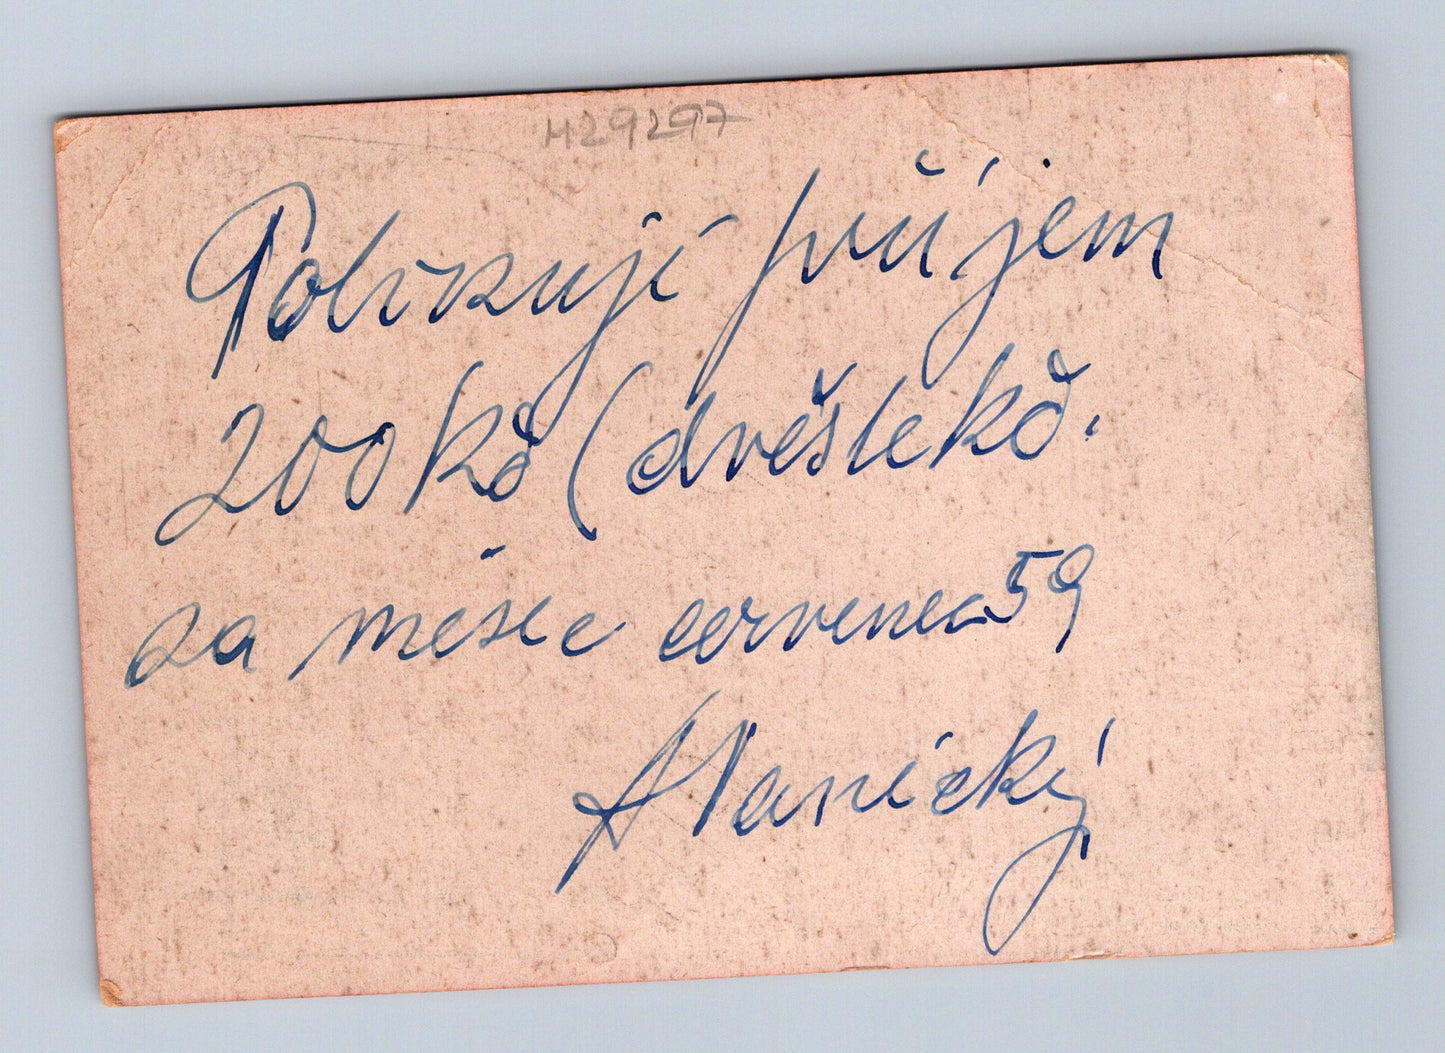 H29297
Potvrzuji příjem
200 kč (dvěstekč.
za měsíc červenec 59